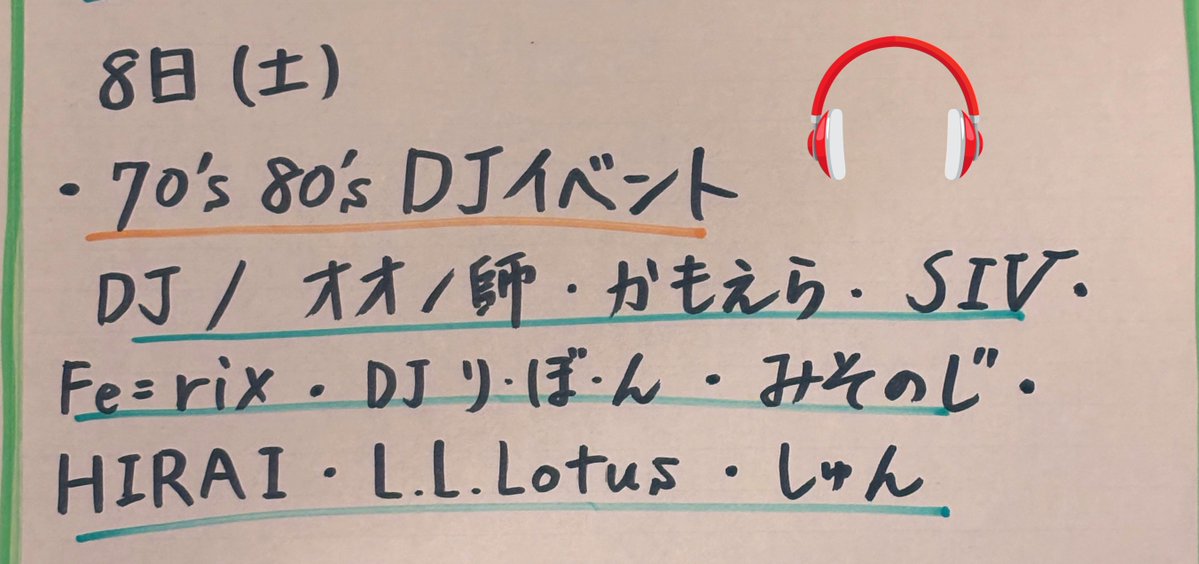 8日(土)
・70's 80's DJイベント
DJ / オオノ師・かもえら・SIV・
Fe=rix・DJ り・ぼ・ん・みそのじ・
HIRAI・L.L.Lotus・しゅん